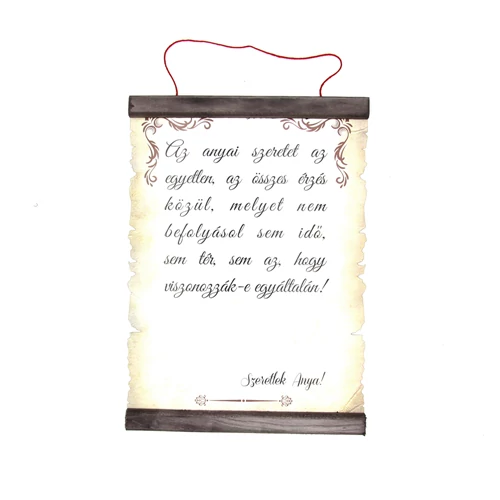 Az anyai szeretet az
egyetlen, az összes érzés
közül, melyet nem
befolyásol sem idő,
sem tér, sem az, hogy
viszonozzák-e egyáltalán!
Szeretlek Anya!